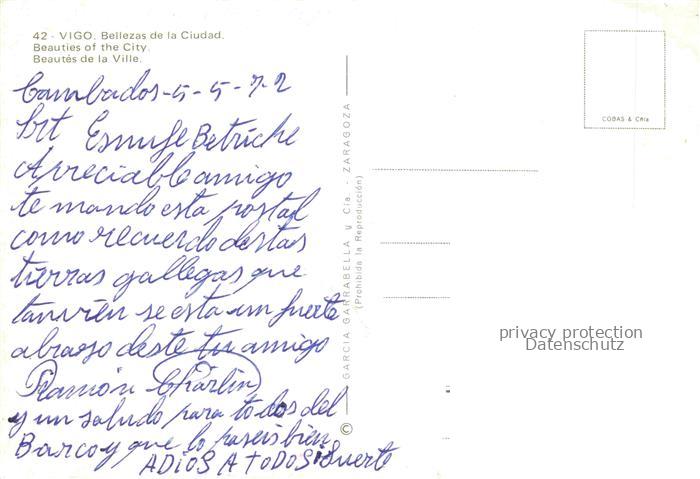 42 - VIGO. Bellezas de la Ciudad.
Beauties of the City.
Beautés de la Ville.
Cambados-5-5-72
Srt Esmufe Betriche
Apreciable amigo
te mando esta postal
como recuerdo destas
tierras gallegas que
tanvien se esta un fuerte
abrazo deste tu amigo
Ramón Charlin
y un saludo para todos del
Barco y que lo paseis bien
ADiOS A TODOS Suerte
GARCIA GARRABELLA y Cia. - ZARAGOZA
(Prohibida la Reproducción)
©
COBAS & Cñia
privacy protection
Datenschutz